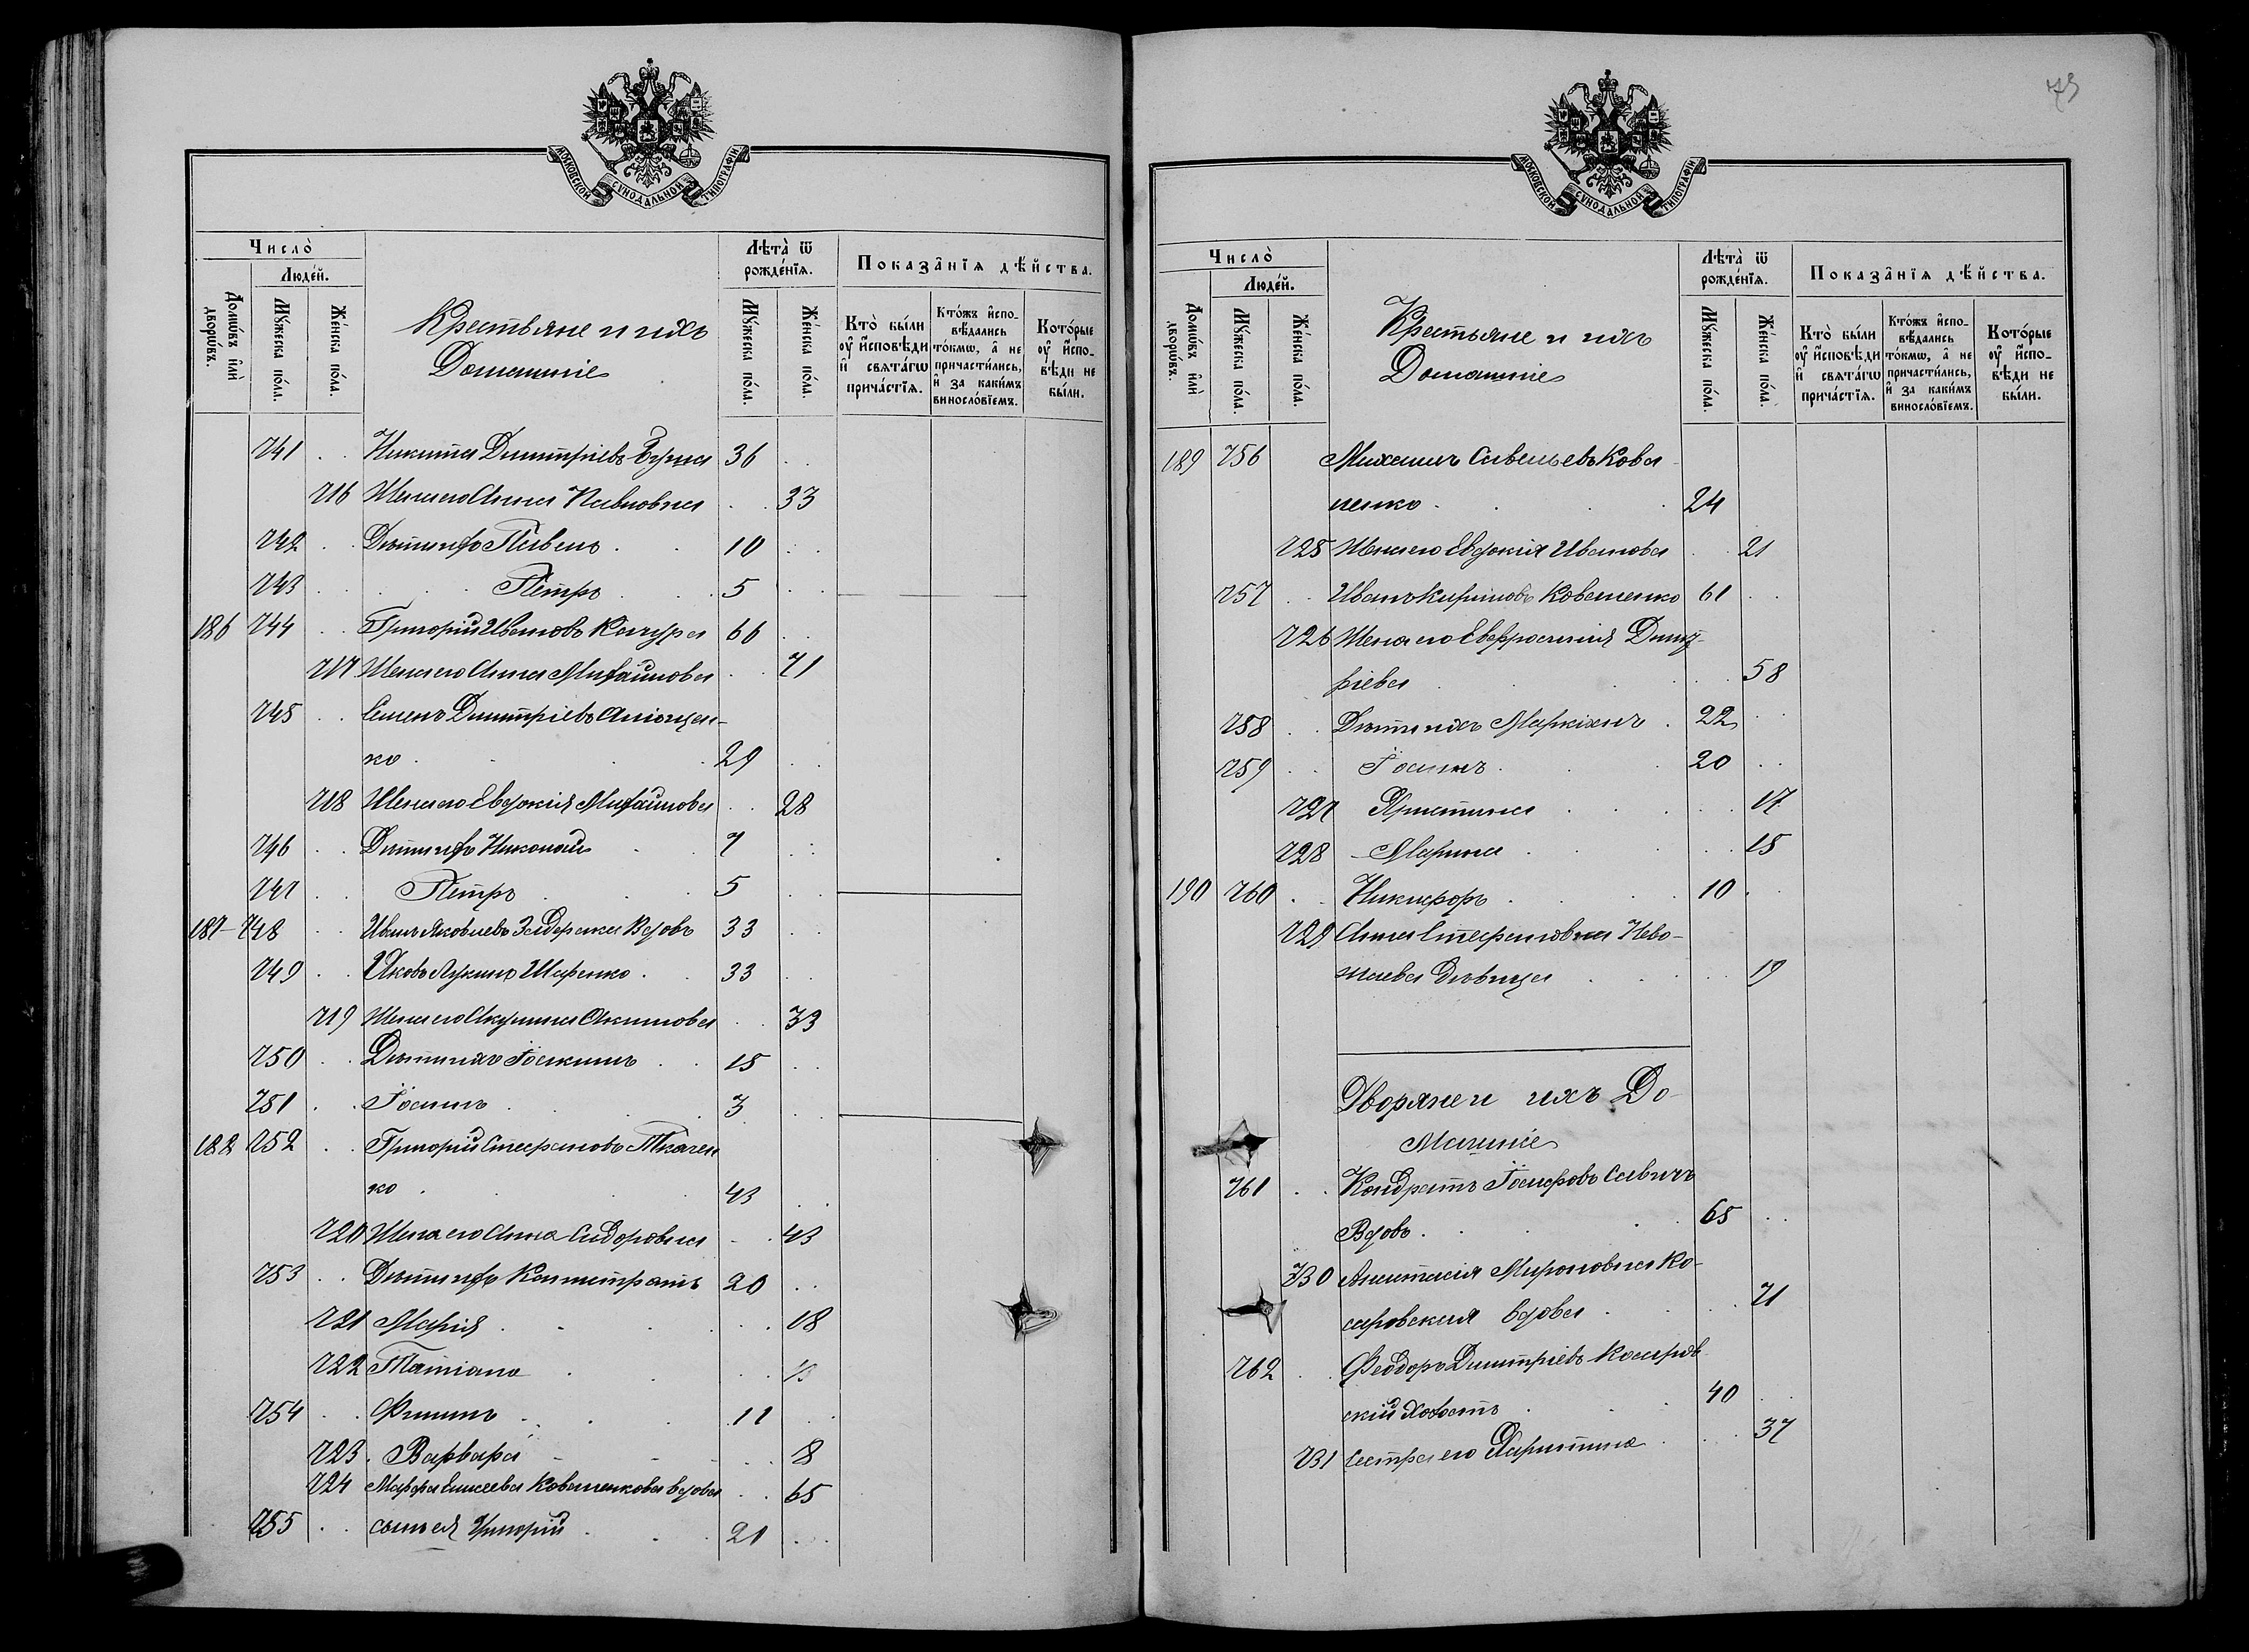 МОСКОВСКОЙ СУНОДАЛЬНОЙ ТИПОГРАФІИ
Число̀
Людéй.
Домѡ́въ и҆лѝ дворѡ́въ.
Мꙋ́жеска по́ла.
Же́нска по́ла.
Крестьяне и ихъ
Домашніе
Лѣта̀ ѿ рожде́нїѧ.
Мꙋ́жеска по́ла.
Же́нска по́ла.
Показа̂нїѧ дѣ́йства.
Кто̀ бы́ли ᲂу҆ и҆сповѣ́ди и҆ свѧта́гѡ прича́стїѧ.
Кто́жъ и҆сповѣ́дались то́кмѡ, а҆ не причасти́лись, и҆ за каки́мъ винословїемъ.
Кото́рые ᲂу҆ и҆сповѣ́ди не бы́ли.
741 Никита Димитріевъ 36
716 Жена его Анна Павловна 33
742 Дѣти ихъ Павелъ 10
743 Петръ 5
186 744 Григорій Ивановъ Качура 66
717 Жена его Анна Михайлова 71
745 Семенъ Димитріевъ
ко 29
718 Жена его Евдокія Михайлова 28
746 Дѣти ихъ Николай 7
747 Петръ 5
187 748 Иванъ Яковлевъ Задерака Вдовъ 33
749 Яковъ Лукинъ Шаренко 33
719 Жена его Акулина Акимова 33
750 Дѣти ихъ Іоакимъ 15
751 Іосифъ 3
188 752 Григорій Стефановъ Ткачен
ко 43
720 Жена его Анна Сидоровна 43
753 Дѣти ихъ Калистратъ 20
721 Марія 18
722 Татіана
754 Филипъ 11
723 Варвара 8
724 Марфа Елисеева Коваленкова вдова 65
755 сынъ ея Григорій 21
75
МОСКОВСКОЙ СУНОДАЛЬНОЙ ТИПОГРАФІИ
Число̀
Людéй.
Домѡ́въ и҆лѝ дворѡ́въ.
Мꙋ́жеска по́ла.
Же́нска по́ла.
Крестьяне и ихъ
Домашніе
Лѣта̀ ѿ рожде́нїѧ.
Мꙋ́жеска по́ла.
Же́нска по́ла.
Показа̂нїѧ дѣ́йства.
Кто̀ бы́ли ᲂу҆ и҆сповѣ́ди и҆ свѧта́гѡ прича́стїѧ.
Кто́жъ и҆сповѣ́дались то́кмѡ, а҆ не причасти́лись, и҆ за каки́мъ винословїемъ.
Кото́рые ᲂу҆ и҆сповѣ́ди не бы́ли.
189 756 Михаилъ Савельевъ Кова
ленко 24
725 Жена его Евдокія Иванова 21
757 Иванъ Кириловъ Коваленко 61
726 Жена его Евфросинія Димит-
ріева 58
758 Дѣти ихъ Маркіанъ 22
759 Іосифъ 20
727 Христина 17
728 Марина 15
190 760 Никифоръ 10
729 Анна Стефановна Нево-
лаева Дѣвица 19
Дворяне и ихъ До-
машніе
761 Кондратъ Іосифовъ Савичъ
Вдовъ 65
730 Анастасія Мироновна Ко-
саровская вдова 71
762 Феодоръ Димитріевъ Косаров
скій Холостъ 40
731 Сестра его Харитина 37